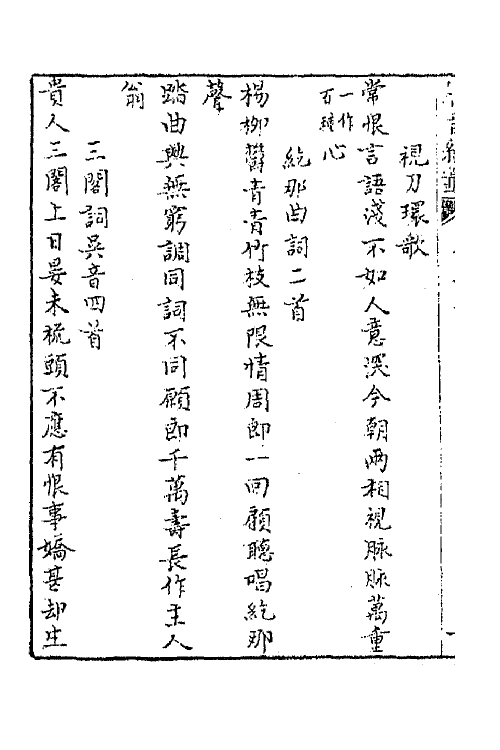 視刀環歌
常恨言語淺不如人意深今朝兩相視脉脉萬重
一作百種心
紇那曲詞二首
楊柳鬱青青竹枝無限情周郎一回顧聽唱紇那
聲
踏曲興無窮調同詞不同願郎千萬壽長作主人
翁
三閣詞吳音四首
貴人三閣上日晏未梳頭不應有恨事嬌甚却生